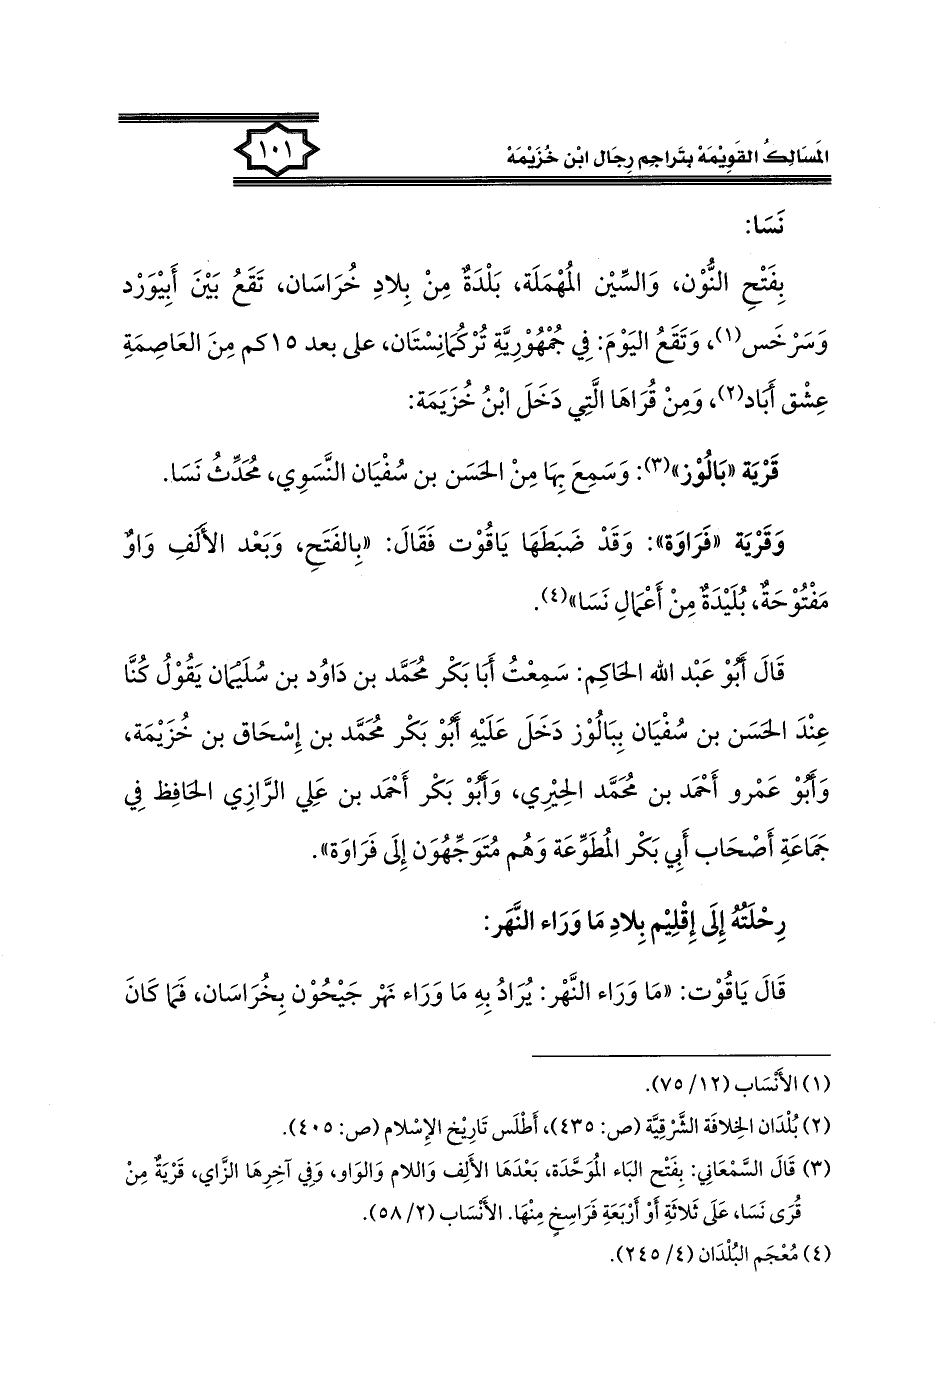 المَسَالِكُ القَوِيْمَة بِتَراجِم رِجَال ابْن خُزَيْمَة
١٠١
نَسَا:
بِفَتْحِ النُّوْن، وَالسِّيْن المُهْمَلَة، بَلْدَةٌ مِنْ بِلادِ خُرَاسَان، تَقَعُ بَيْنَ أَبِيْوَرْد
وَسَرْخَس(١)، وَتَقَعُ اليَوْمَ: فِي جُمْهُوْرِيَّةِ تُرْكُمَانِسْتَان، على بعد ١٥كم مِنَ العَاصِمَةِ
عِشْق أَبَاد(٢)، وَمِنْ قُرَاهَا الَّتِي دَخَلَ ابْنُ خُزَيَمَة:
قَرْيَة «بَالُوْز»(٣): وَسَمِعَ بِهَا مِنْ الحَسَن بن سُفْيَان النَّسَوِي، مُحَدِّثُ نَسَا.
وَقَرْيَة «فَرَاوَة»: وَقَدْ ضَبَطَهَا يَاقُوْت فَقَالَ: «بِالفَتْحِ، وَبَعْد الأَلَفِ وَاوٌ
مَفْتُوْحَةٌ، بُلَيْدَةٌ مِنْ أَعْمَالِ نَسَا»(٤).
قَالَ أَبُوْ عَبْد الله الحَاكِم: سَمِعْتُ أَبَا بَكْر مُحَمَّد بن دَاوُد بن سُلَيْمَان يَقُوْلُ كُنَّا
عِنْدَ الحَسَن بن سُفْيَان بِبَالُوْز دَخَلَ عَلَيْهِ أَبُوْ بَكْر مُحَمَّد بن إِسْحَاق بن خُزَيْمَة،
وَأَبُوْ عَمْرو أَحْمَد بن مُحَمَّد الحِيْرِي، وَأَبُوْ بَكْر أَحْمَد بن عَلِي الرَّازِي الحَافِظ فِي
جَمَاعَةِ أَصْحَاب أَبِي بَكْر المُطَوِّعَة وَهُم مُتَوَجِّهُوْن إِلَى فَرَاوَة».
رِحْلَتُهُ إِلَى إِقْلِيْم بِلادِ مَا وَرَاء النَّهَر:
قَالَ يَاقُوْت: «مَا وَرَاء النَّهْر: يُرَادُ بِهِ مَا وَرَاء نَهْر جَيْحُوْن بِخُرَاسَان، فَمَا كَانَ
(١) الأَنْسَاب (١٢/ ٧٥).
(٢) بُلْدَان الخِلافَة الشَّرْقِيَّة (ص: ٤٣٥)، أَطْلَس تَارِيْخ الإِسْلام (ص: ٤٠٥).
(٣) قَالَ السَّمْعَانِي: بِفَتْح البَاء المُوَحَّدَة، بَعْدَهَا الأَلِف وَاللام وَالوَاو، وَفِي آخِرِهَا الزَّاي، قَرْيَةٌ مِنْ
قُرَى نَسَا، عَلَى ثَلاثَةِ أَوْ أَرْبَعَةِ فَرَاسِخٍ مِنْهَا. الأَنْسَاب (٢/ ٥٨).
(٤) مُعْجَم البُلْدَان (٤/ ٢٤٥).